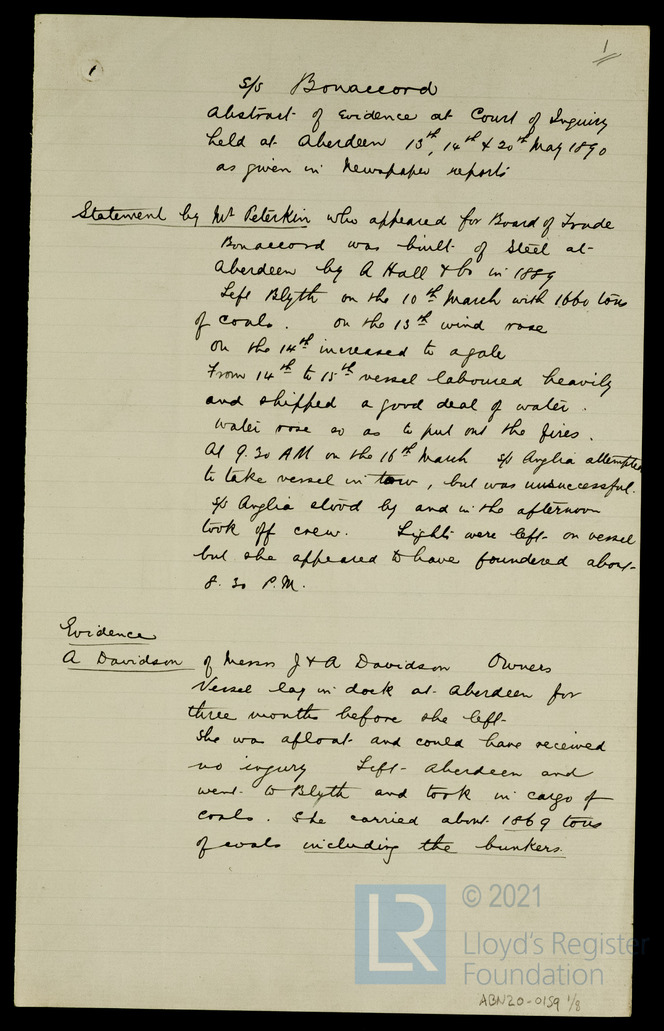 1
1
S/S Bonaccord
Abstract of Evidence at Court of Inquiry
held at Aberdeen 13th, 14th & 20th May 1890
as given in Newspaper reports
Statement by Mr Peterkin who appeared for Board of Trade
Bonaccord was built of Steel at
Aberdeen by A Hall & Co in 1889
Left Blyth on the 10th March with 1660 tons
of coals. On the 13th wind rose
on the 14th increased to a gale
From 14th to 15th vessel laboured heavily
and shipped a good deal of water.
Water rose so as to put out the fires.
At 9.30 AM on the 16th March S/S Anglia attempted
to take vessel in tow, but was unsuccessful.
S/S Anglia stood by and in the afternoon
took off crew. Lights were left on vessel
but she appeared to have foundered about
8.30 P.M.
Evidence
A Davidson of Messrs J & A Davidson Owners
Vessel lay in dock at Aberdeen for
three months before she left
She was afloat and could have received
no injury Left Aberdeen and
went to Blyth and took in cargo of
coals. She carried about 1869 tons
of coals including the bunkers.
© 2021
LR
Lloyd's Register
Foundation
ABN20-0159 1/8